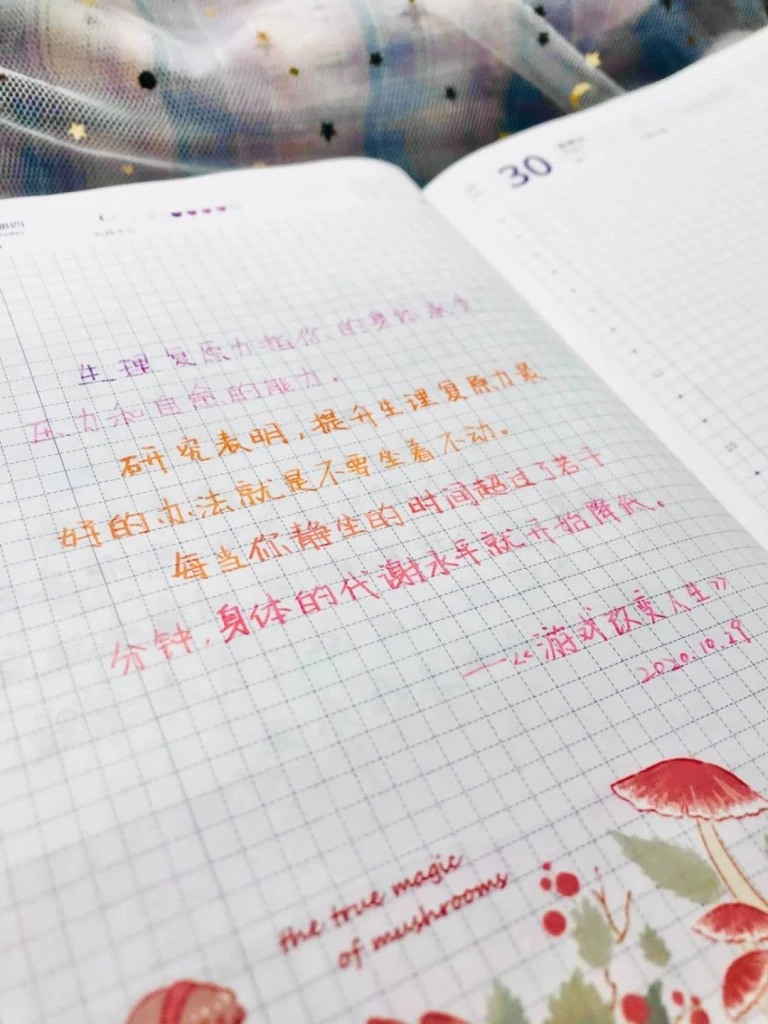 30
生理复原力指你的身体承受
压力和自愈的能力。
研究表明,提升生理复原力最
好的办法就是不要坐着不动。
每当你静坐的时间超过了若干
分钟,身体的代谢水平就开始降低。
——《游戏改变人生》
2020.10.29
the true magic
of mushrooms